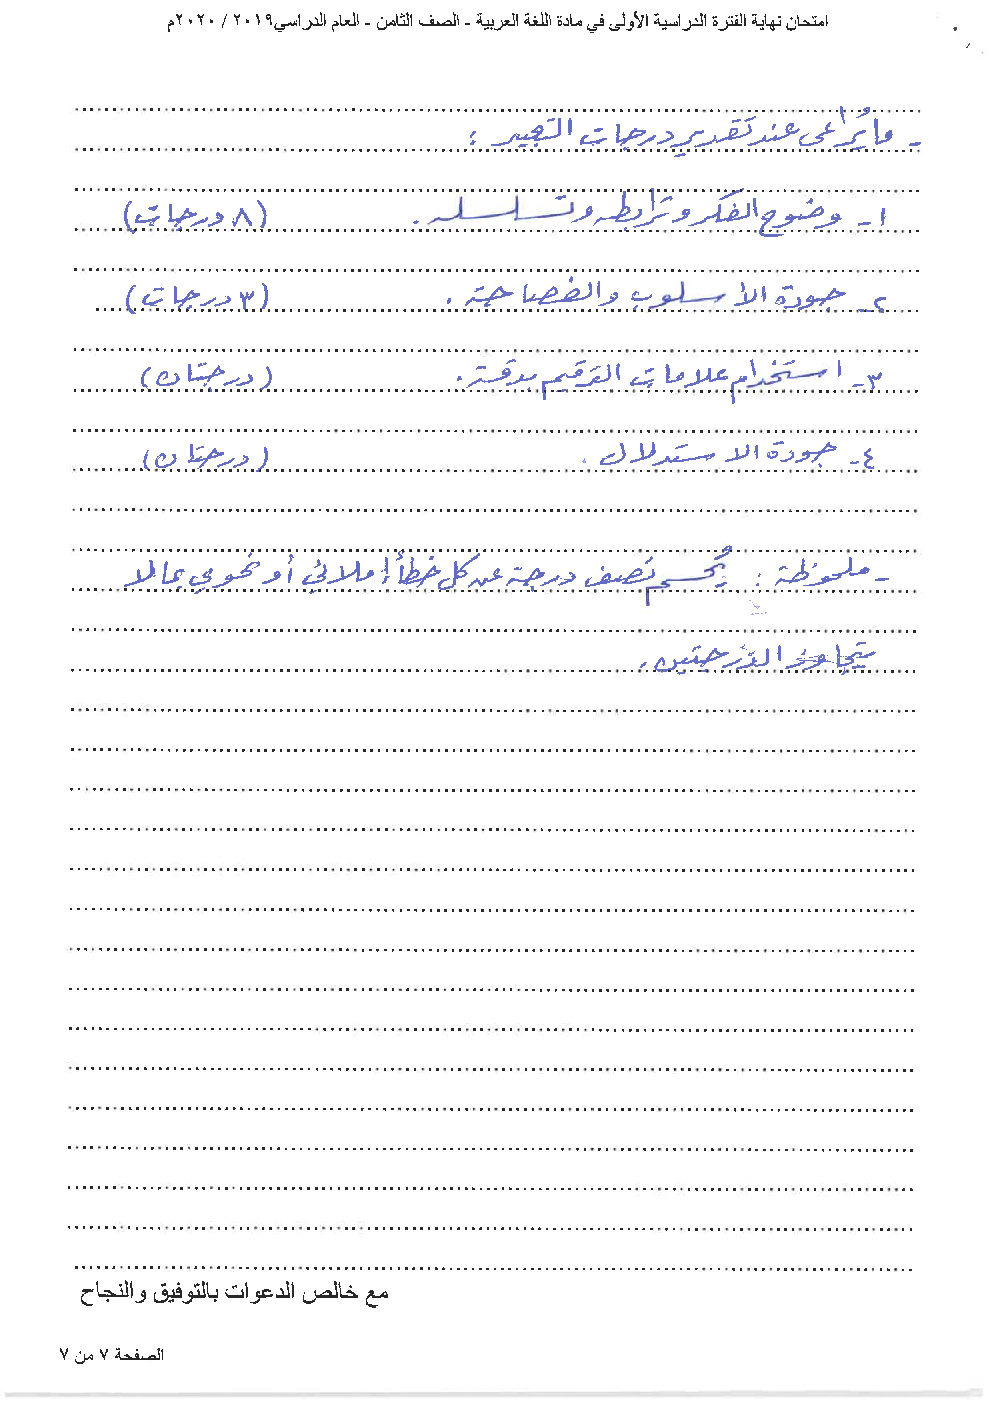 امتحان نهاية الفترة الدراسية الأولى في مادة اللغة العربية - الصف الثامن - العام الدراسي ٢٠١٩ / ٢٠٢٠م
- ما يُراعى عند تقدير درجات التعبير :
١- وضوح الفكر وترابطه وتسلسله . (٨ درجات)
٢- جودة الأسلوب والفصاحة . (٣ درجات)
٣- استخدام علامات الترقيم بدقة . (درجتان)
٤- جودة الاستدلال . (درجتان)
- ملحوظة : يُحسم نصف درجة عن كل خطأ إملائي أو نحوي بما لا
يتجاوز الدّرجتين .
مع خالص الدعوات بالتوفيق والنجاح
الصفحة ٧ من ٧